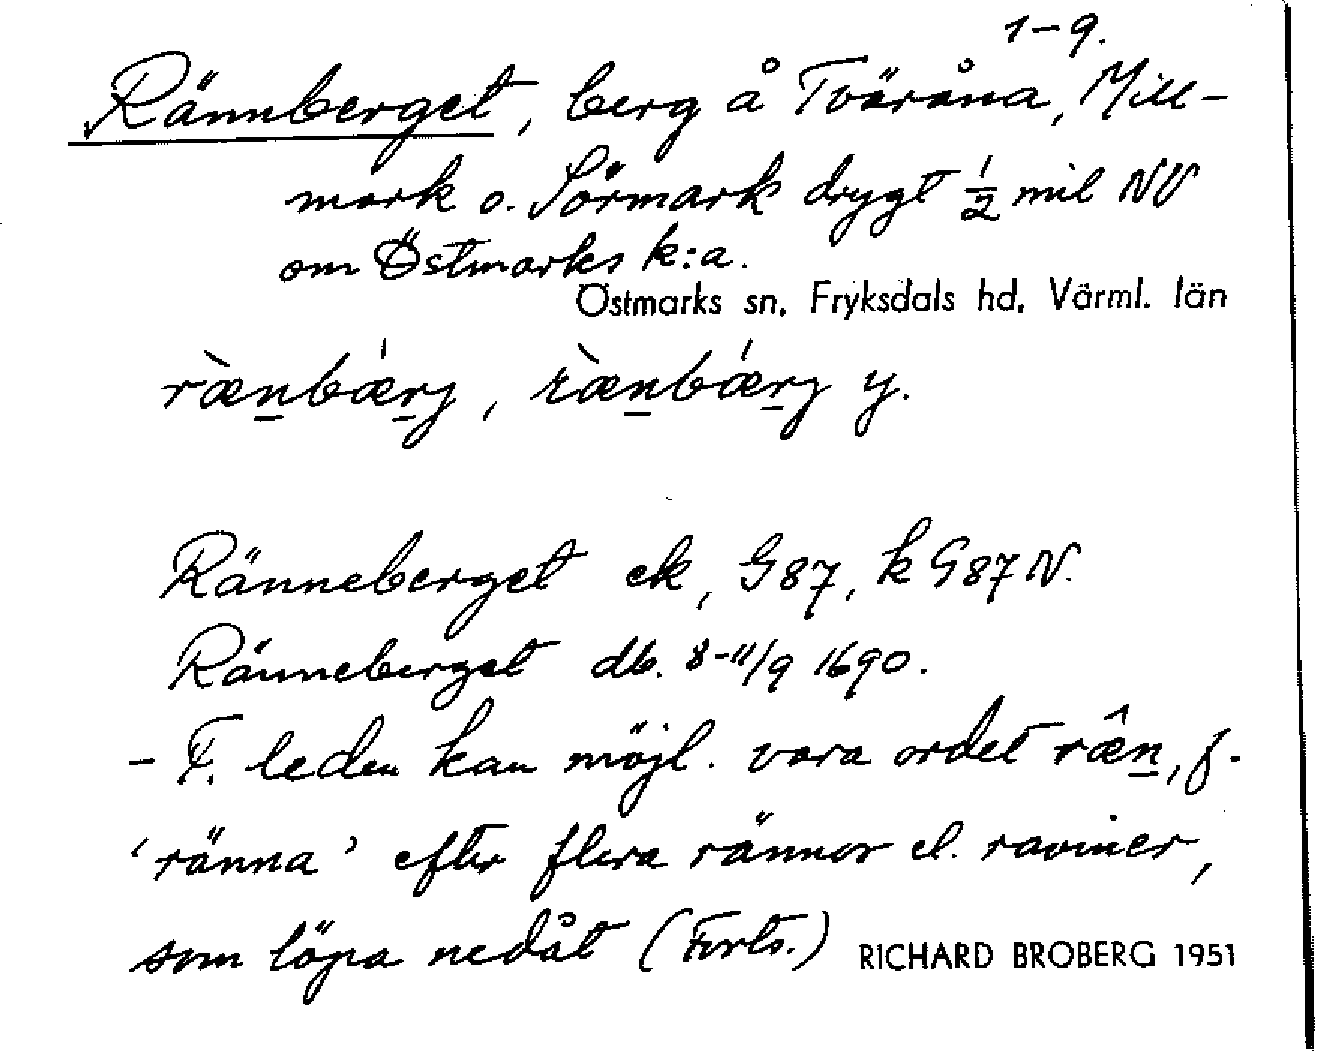 1–9.
Rännberget, berg å Tväråna, Mill-
mark o. Sörmark drygt 1/2 mil NV
om Östmarks k:a.
Östmarks sn, Fryksdals hd, Värml. län
ræ̀n̲bǽr̲j, ræ̀n̲bǽr̲j y.
Ränneberget ek, G87, k G87 N.
Ränneberget db. 8-11/9 1690.
– F. leden kan möjl. vara ordet ræ̂n̲, f.
‘ränna’ efter flera rännor el. raviner,
som löpa nedåt (Forts.) RICHARD BROBERG 1951